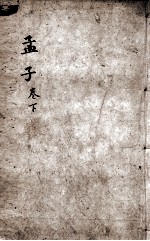 孟子卷下